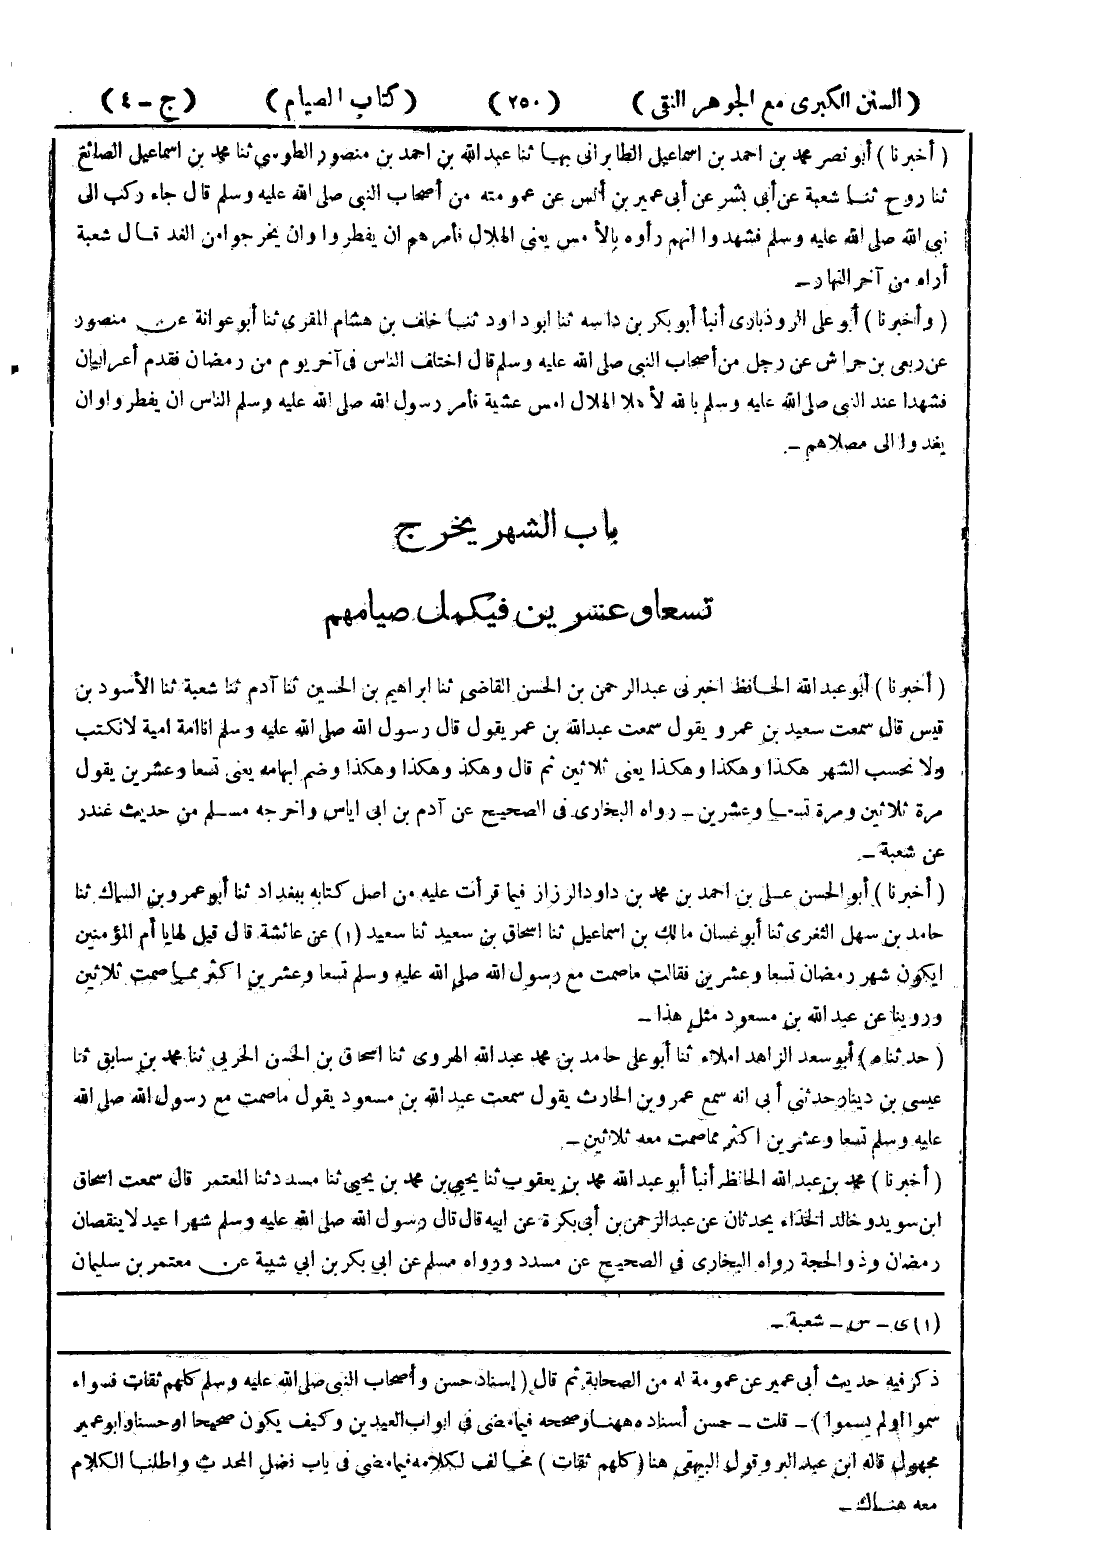 ( السنن الكبرى مع الجوهر النقى ) ( ٢٥٠ ) ( كتاب الصيام ) ( ج - ٤ )
( أخبرنا ) أبو نصر محمد بن احمد بن اسماعيل الطابرانى بها ثنا عبد الله بن احمد بن منصور الطوسي ثنا محمد بن اسماعيل الصائغ
ثنا روح ثنا شعبة عن أبى بشر عن أبى عمير بن أنس عن عمومته من أصحاب النبى صلى الله عليه وسلم قال جاء ركب الى
نبى الله صلى الله عليه وسلم فشهدوا انهم رأوه بالأمس يعنى الهلال فأمرهم ان يفطروا وان يخرجوا من الغد قال شعبة
أراه من آخر النهار -
( وأخبرنا ) أبو على الروذبارى أنبأ أبو بكر بن داسه ثنا ابو داود ثنا خلف بن هشام المقرى ثنا أبو عوانة عن منصور
عن ربعى بن حراش عن رجل من أصحاب النبى صلى الله عليه وسلم قال اختلف الناس فى آخر يوم من رمضان فقدم أعرابيان
فشهدا عند النبى صلى الله عليه وسلم بالله لأهلا الهلال امس عشية فأمر رسول الله صلى الله عليه وسلم الناس ان يفطروا وان
يغدوا الى مصلاهم -
باب الشهر يخرج
تسعا وعشرين فيكمل صيامهم
( أخبرنا ) أبو عبد الله الحافظ اخبرنى عبد الرحمن بن الحسن القاضى ثنا ابراهيم بن الحسين ثنا آدم ثنا شعبة ثنا الأسود بن
قيس قال سمعت سعيد بن عمرو يقول سمعت عبد الله بن عمر يقول قال رسول الله صلى الله عليه وسلم انا امة امية لا نكتب
ولا نحسب الشهر هكذا وهكذا وهكذا يعنى ثلاثين ثم قال وهكذ وهكذا وهكذا وضم ابهامه يعنى تسعا وعشرين يقول
مرة ثلاثين ومرة تسعا وعشرين - رواه البخارى فى الصحيح عن آدم بن ابى اياس واخرجه مسلم من حديث غندر
عن شعبة -
( أخبرنا ) أبو الحسن على بن احمد بن محمد بن داود الرزاز فيما قرأت عليه من اصل كتابه ببغداد ثنا أبو عمرو بن السماك ثنا
حامد بن سهل الثغرى ثنا أبو غسان مالك بن اسماعيل ثنا اسحاق بن سعيد ثنا سعيد (١) عن عائشة قال قيل لها يا أم المؤمنين
ايكون شهر رمضان تسعا وعشرين فقالت ما صمت مع رسول الله صلى الله عليه وسلم تسعا وعشرين اكثر مما صمت ثلاثين
وروينا عن عبد الله بن مسعود مثل هذا -
( حدثناه ) أبو سعد الزاهد املاء ثنا أبو على حامد بن محمد عبد الله الهروى ثنا اسحاق بن الحسن الحربى ثنا محمد بن سابق ثنا
عيسى بن دينار حدثنى أبى انه سمع عمرو بن الحارث يقول سمعت عبد الله بن مسعود يقول ما صمت مع رسول الله صلى الله
عليه وسلم تسعا وعشرين اكثر مما صمت معه ثلاثين -
( أخبرنا ) محمد بن عبد الله الحافظ أنبأ أبو عبد الله محمد بن يعقوب ثنا يحيى بن محمد بن يحيى ثنا مسدد ثنا المعتمر قال سمعت اسحاق
ابن سويد وخالد الحذاء يحدثان عن عبد الرحمن بن أبى بكرة عن ابيه قال قال رسول الله صلى الله عليه وسلم شهرا عيد لا ينقصان
رمضان وذو الحجة رواه البخارى فى الصحيح عن مسدد ورواه مسلم عن ابى بكر بن ابى شيبة عن معتمر بن سليمان
(١) ى - س - شعبة -
ذكر فيه حديث أبى عمير عن عمومة له من الصحابة ثم قال ( إسناد حسن وأصحاب النبى صلى الله عليه وسلم كلهم ثقات فسواء
سموا أولم يسموا ) - قلت - حسن أسناده ههنا وصححه فيما مضى فى ابواب العيدين وكيف يكون صحيحا او حسنا وابو عمير
مجهول قاله ابن عبد البر وقول البيهقى هنا ( كلهم ثقات ) مخالف لكلامه فيما مضى فى باب فضل المحدث واطلنا الكلام
معه هناك -